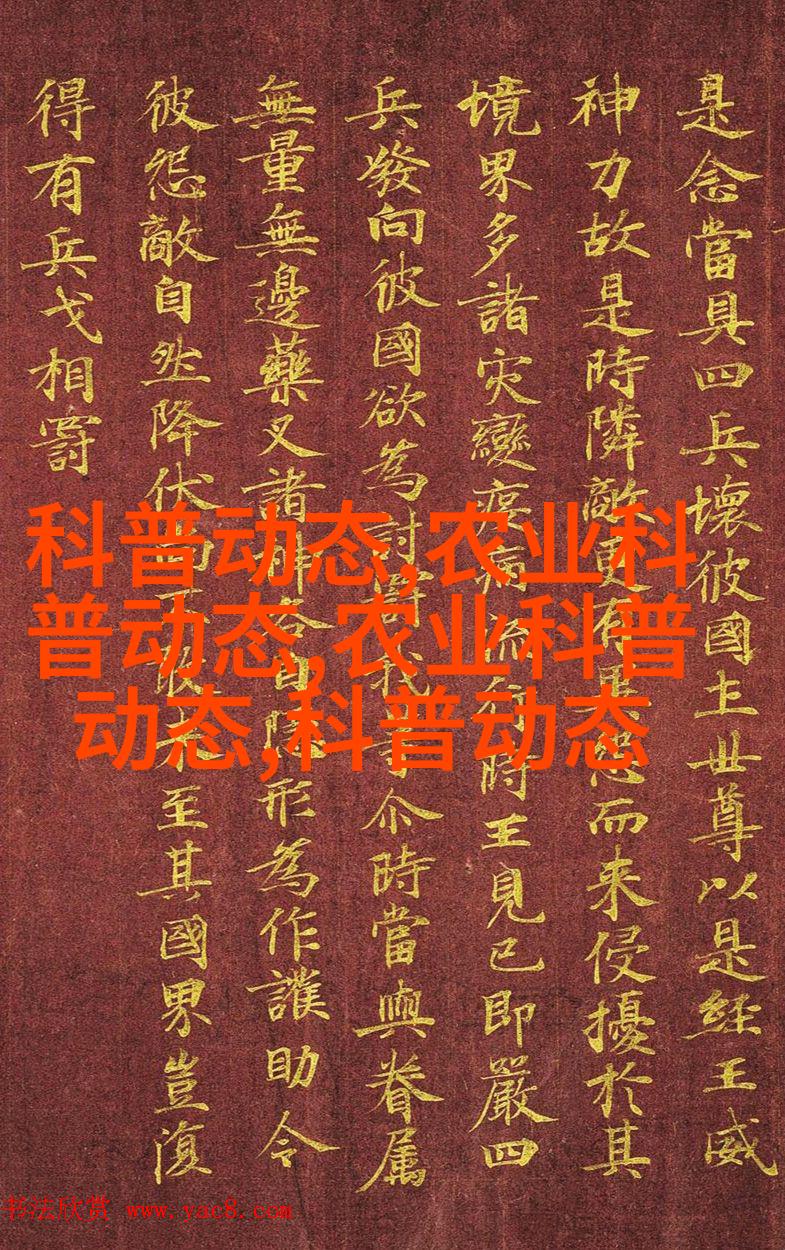 是念當具四兵壞彼國土世尊以是經王威
神力故是時隣敵更有異怨而来侵擾於其
境界多諸灾變疫病流行時王見已即嚴四
兵發向彼國欲為討罰我等尒時當與眷属
無量無邊藥叉諸神各自隱形為作護助令
彼怨敵自然降伏尚不敢来至其國界豈復
得有兵戈相罸
科普动态,农业科
普动态,农业科普
动态,科普动态
书法欣赏 www.yac8.com